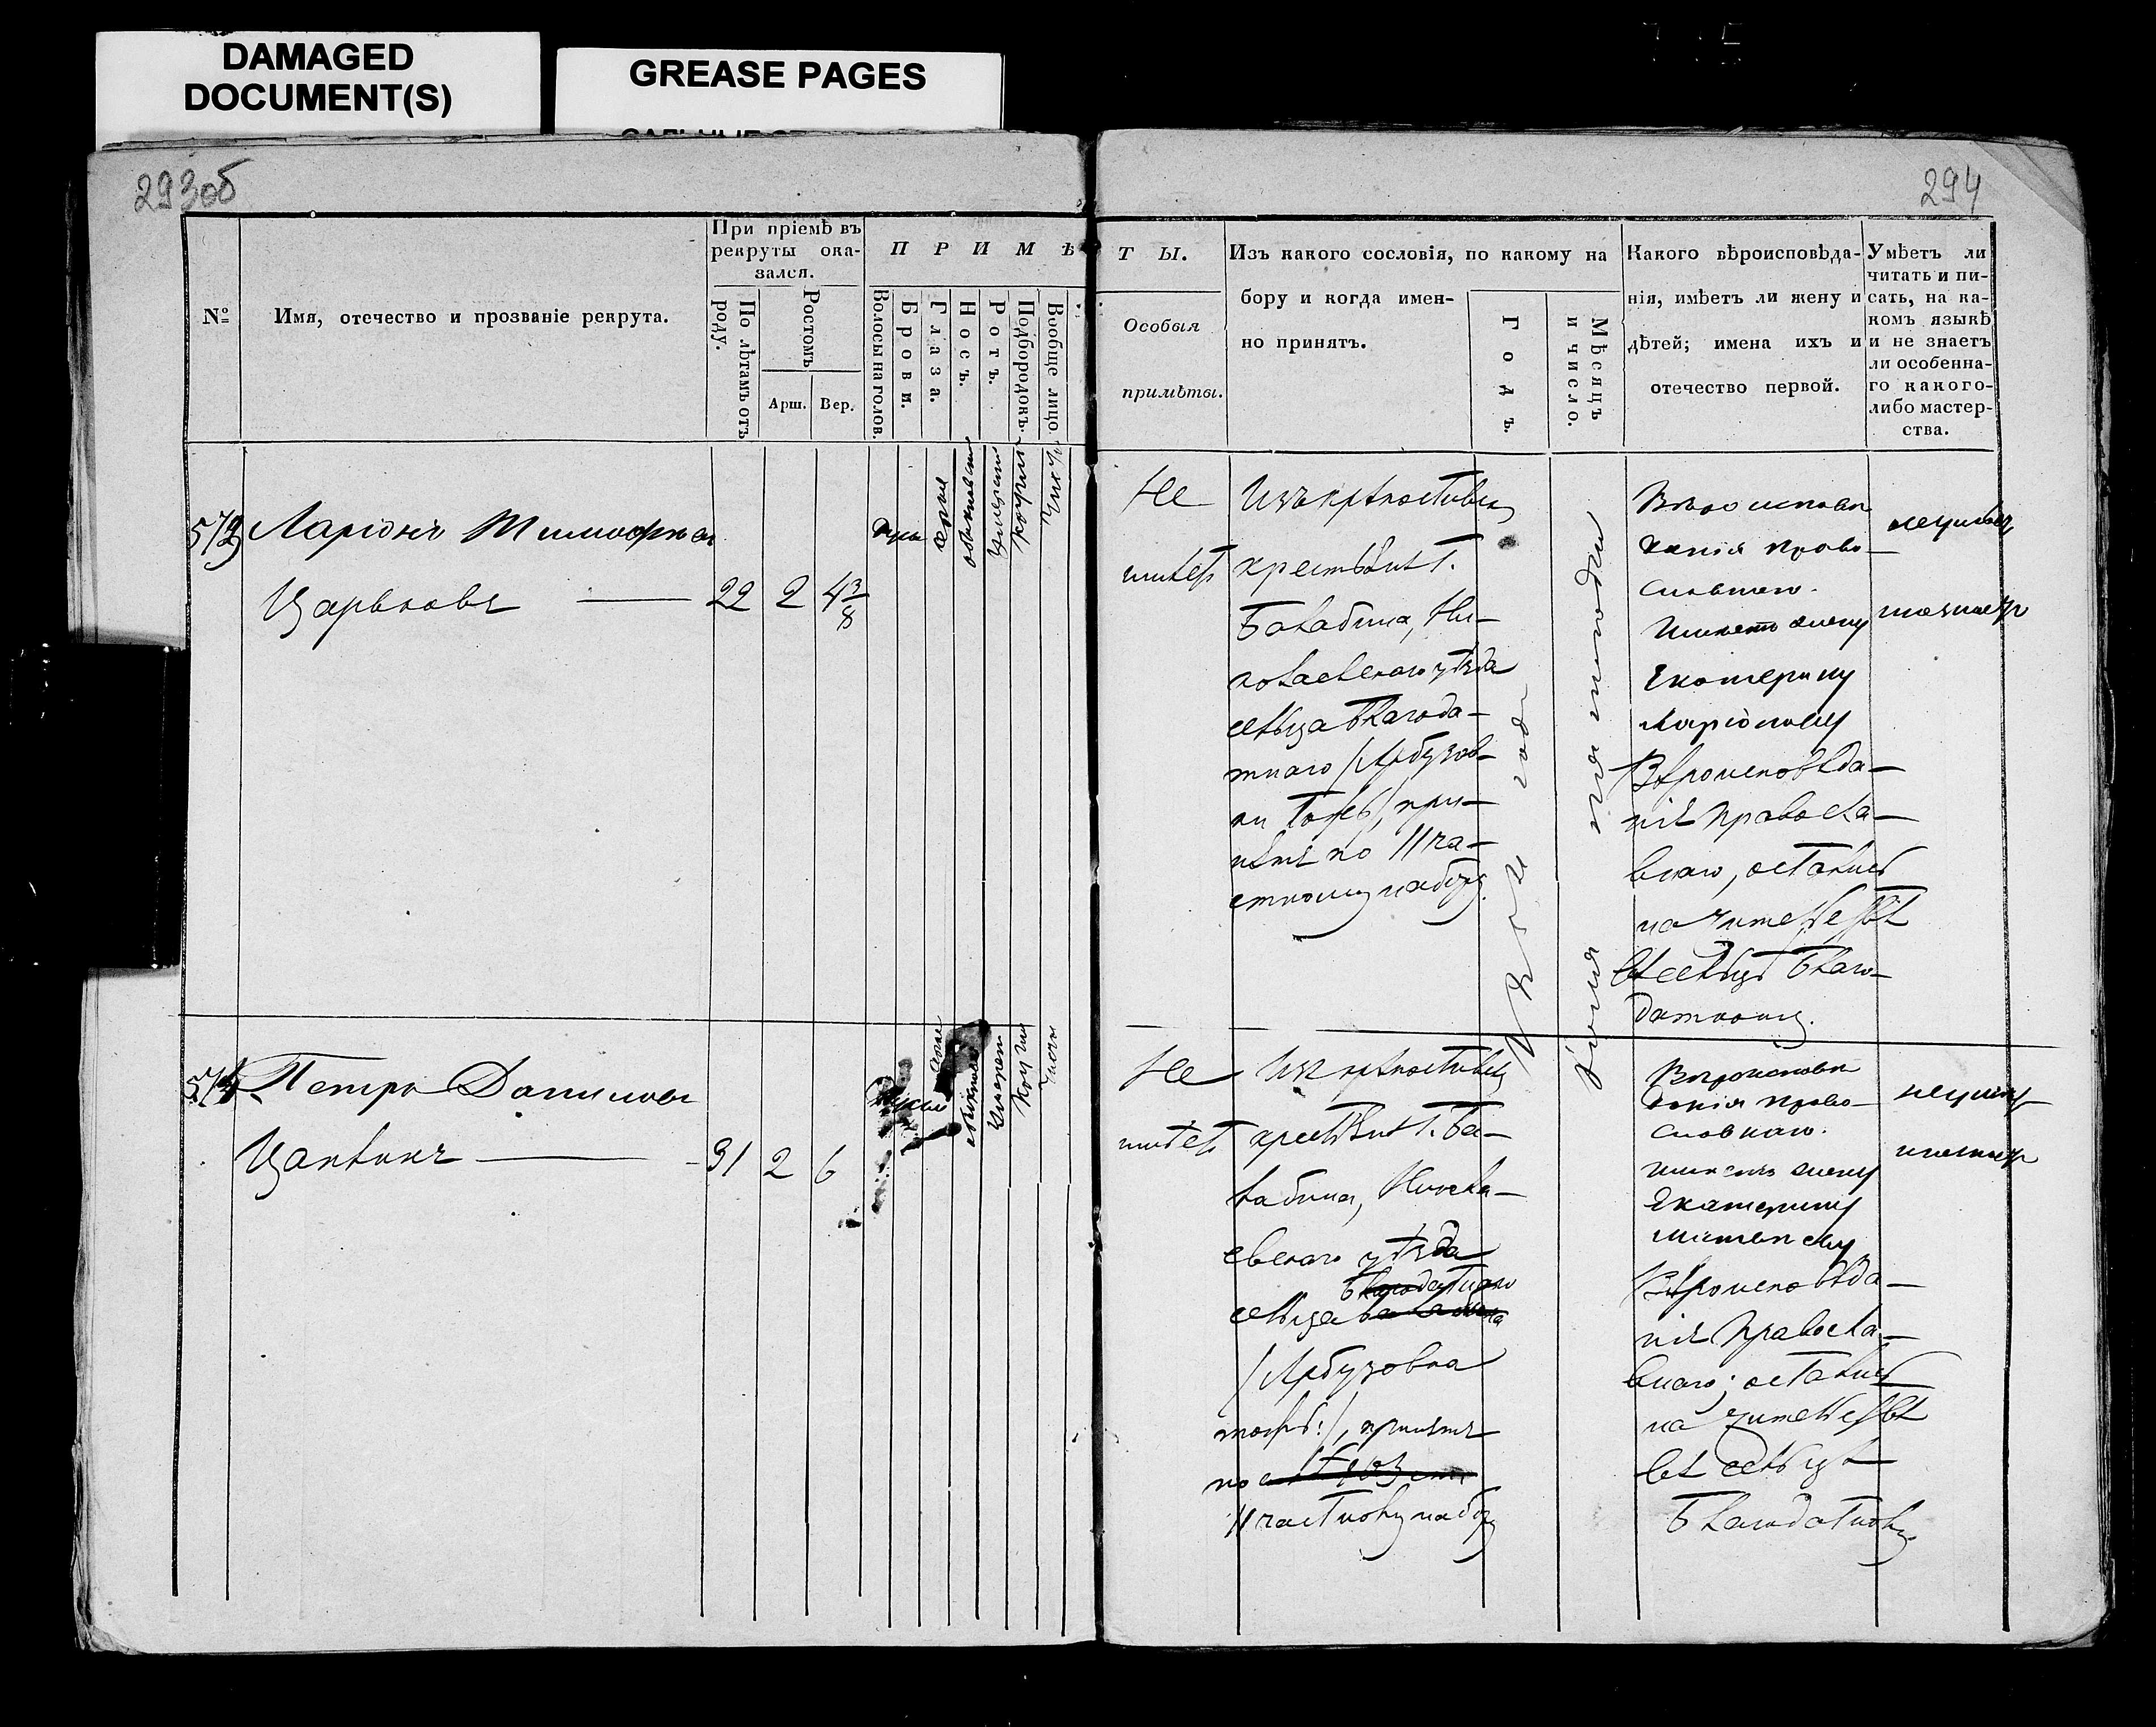 DAMAGED
DOCUMENT(S)
GREASE PAGES
293об
№
Имя, отечество и прозваніе рекрута.
При пріемѣ въ
рекруты ока-
зался.
По лѣтамъ отъ
роду.
Ростомъ
Арш.
Вер.
П Р И М Ѣ
Волосы на голов.
Брови.
Глаза.
Носъ.
Ротъ.
Подбородокъ.
Вообще лицо.
Ларіонъ Тимофѣевъ
Царьковъ — 22 2 4 3/8
Петръ Даниловъ
Цапкинъ — 31 2 6
294
Т Ы.
Особыя
примѣты.
Изъ какого сословія, по какому на
бору и когда имен-
но принятъ.
Годъ.
Мѣсяцъ
и число.
Какого вѣроисповѣда-
нія, имѣетъ ли жену и
дѣтей; имена ихъ и
отечество первой.
Умѣетъ ли
читать и пи-
сать, на ка-
комъ языкѣ
и не знаетъ
ли особенна-
го какого-
либо мастер-
ства.
Не
имѣетъ
Изъ крѣпостныхъ
крестьянъ Г.
Балабина, Ни-
колаевскаго уѣзда
сельца Благода-
тнаго /Арбузов-
ки тожъ/, при-
нятъ по 11 ча-
стному набору.
Вѣроисповѣ
данія право-
славнаго.
Имѣетъ жену
Екатерину
Ларіонову
Вѣроисповѣда-
нія Правосла-
внаго, осталась
на жительствѣ
въ сельцѣ Благо-
датномъ.
неумѣетъ
незнаетъ
Не
имѣетъ
Изъ крѣпостныхъ
крестьянъ Г. Ба-
лабина, Никола-
евскаго уѣзда
Благодатнаго
сельца
/Арбузовка
тожъ:/, принятъ
по
11 частному набору
Вѣроисповѣ
данія право-
славнаго.
имѣетъ жену
Екатерину
Вѣроисповѣда-
нія Правосла-
внаго; осталась
на жительствѣ
въ сельцѣ
Благодатномъ.
неумѣетъ
незнаетъ